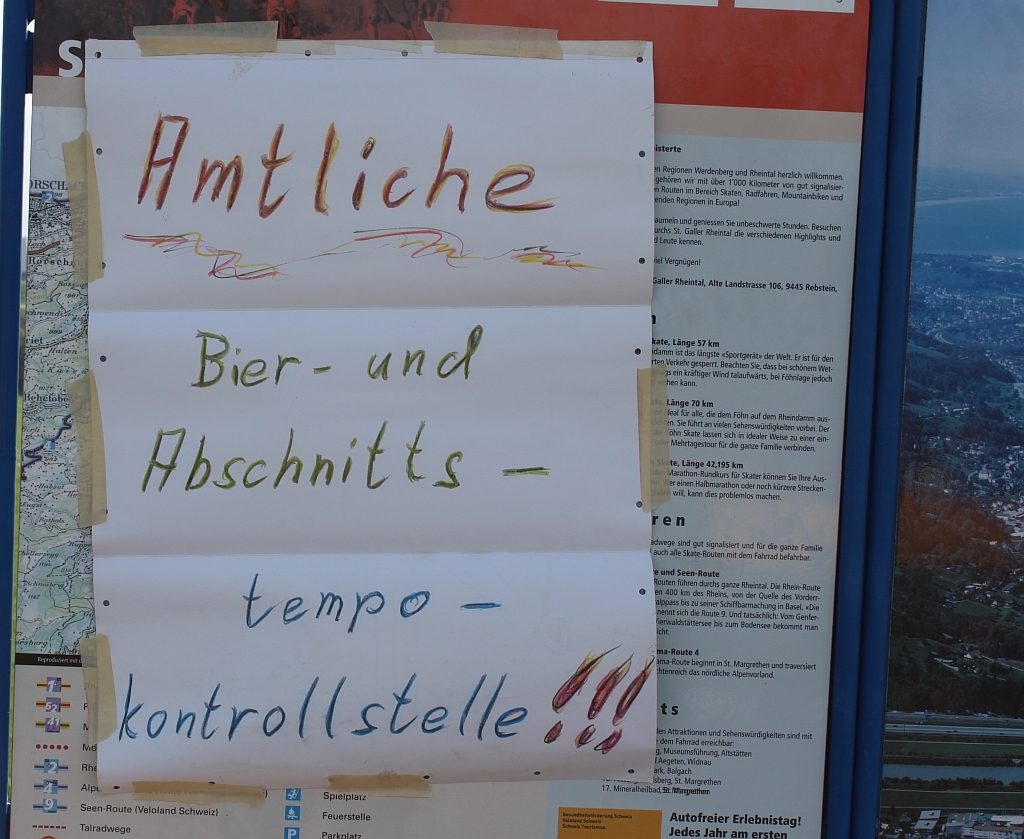 Amtliche
Bier- und
Abschnitts-
tempo-
kontrollstelle!!!
Regionen Werdenberg und Rheintal herzlich willkommen.
gehören wir mit über 1'000 Kilometer von gut signalisier-
Routen im Bereich Skaten, Radfahren, Mountainbiken und
enden Regionen in Europa!
aumeln und geniessen Sie unbeschwerte Stunden. Besuchen
urchs St. Galler Rheintal die verschiedenen Highlights und
d Leute kennen.
iel Vergnügen!
Galler Rheintal, Alte Landstrasse 106, 9445 Rebstein,
kate, Länge 57 km
ndamm ist das längste «Sportgerät» der Welt. Er ist für den
rten Verkehr gesperrt. Beachten Sie, dass bei schönem Wet-
gs ein kräftiger Wind talaufwärts, bei Föhnlage jedoch
ehen kann.
Länge 70 km
deal für alle, die dem Föhn auf dem Rheindamm aus-
Sie führt an vielen Sehenswürdigkeiten vorbei. Der
Föhn Skate lassen sich in idealer Weise zu einer ein-
Mehrtagestour für die ganze Familie verbinden.
Skate, Länge 42,195 km
Marathon-Rundkurs für Skater können Sie Ihre Aus-
er einen Halbmarathon oder noch kürzere Strecken-
will, kann dies problemlos machen.
ren
adwege sind gut signalisiert und für die ganze Familie
auch alle Skate-Routen mit dem Fahrrad befahrbar.
e und Seen-Route
Routen führen durchs ganze Rheintal. Die Rhein-Route
en 400 km des Rheins, von der Quelle des Vorderr-
alppass bis zu seiner Schiffbarmachung in Basel. «Die
nennt sich die Route 9. Und tatsächlich: Vom Genfer-
ierwaldstättersee bis zum Bodensee bekommt man
icht.
ma-Route 4
ama-Route beginnt in St. Margrethen und traversiert
chtenreich das nördliche Alpenvorland.
ts
den Attraktionen und Sehenswürdigkeiten sind mit
dem Fahrrad erreichbar:
g, Museumsführung, Altstätten
Aegeten, Widnau
ark, Balgach
sberg, St. Margrethen
17. Mineralheilbad, St. Margrethen
Reproduziert mit
1
52
41
2
Rhe
4
Alp
9
Seen-Route (Veloland Schweiz)
Talradwege
Spielplatz
Feuerstelle
P
Parkplatz
Gesundheitsförderung Schweiz
Veloland Schweiz
Schweiz Tourismus
Autofreier Erlebnistag!
Jedes Jahr am ersten